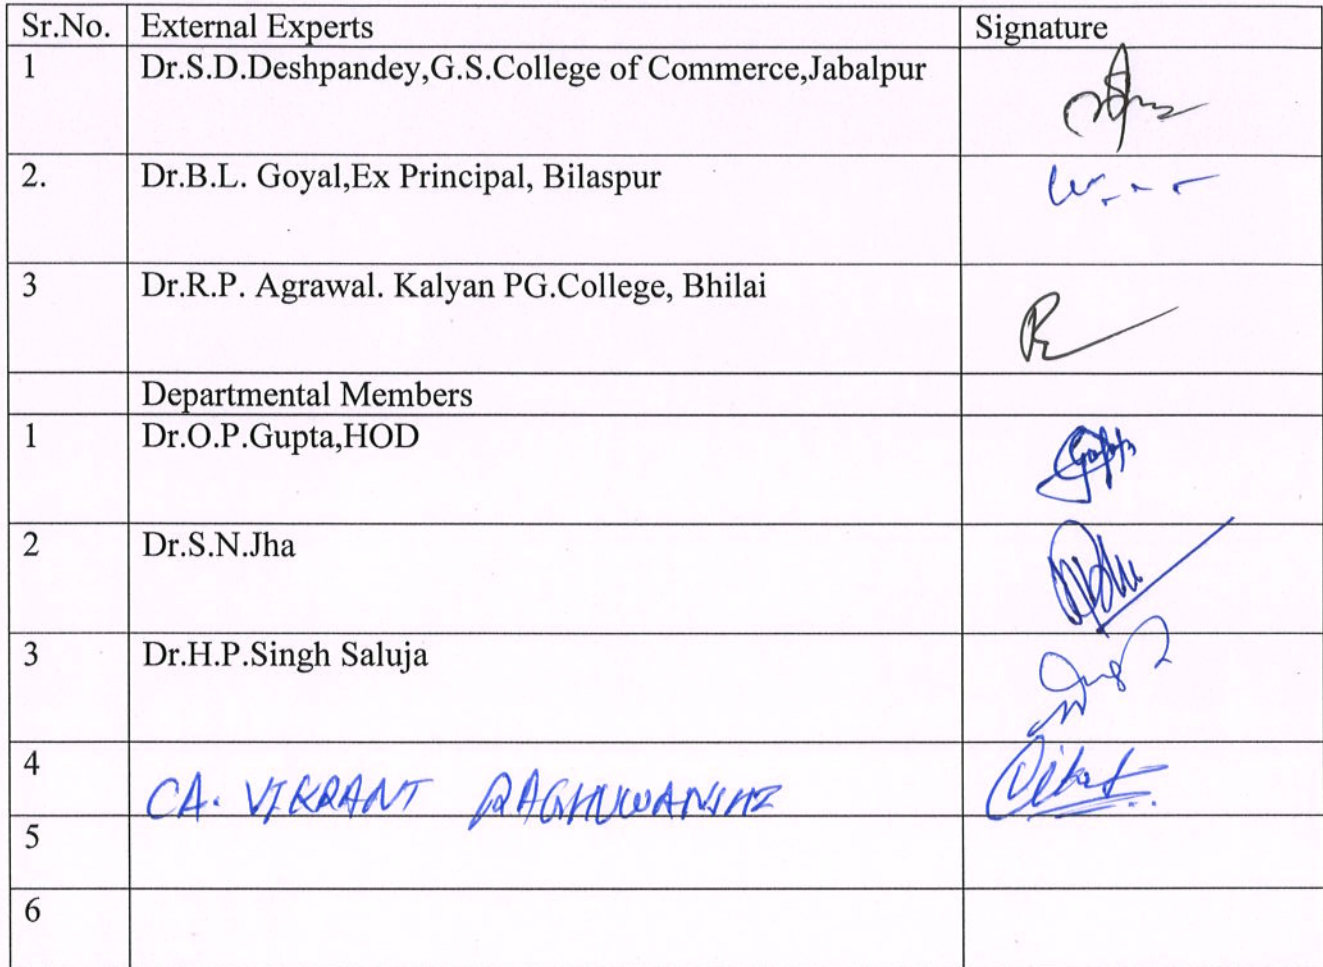 Sr.No. External Experts Signature
1 Dr.S.D.Deshpandey,G.S.College of Commerce,Jabalpur
2. Dr.B.L. Goyal,Ex Principal, Bilaspur
3 Dr.R.P. Agrawal. Kalyan PG.College, Bhilai
Departmental Members
1 Dr.O.P.Gupta,HOD
2 Dr.S.N.Jha
3 Dr.H.P.Singh Saluja
4 CA. VIKRANT RAGHUWANSHI
5
6